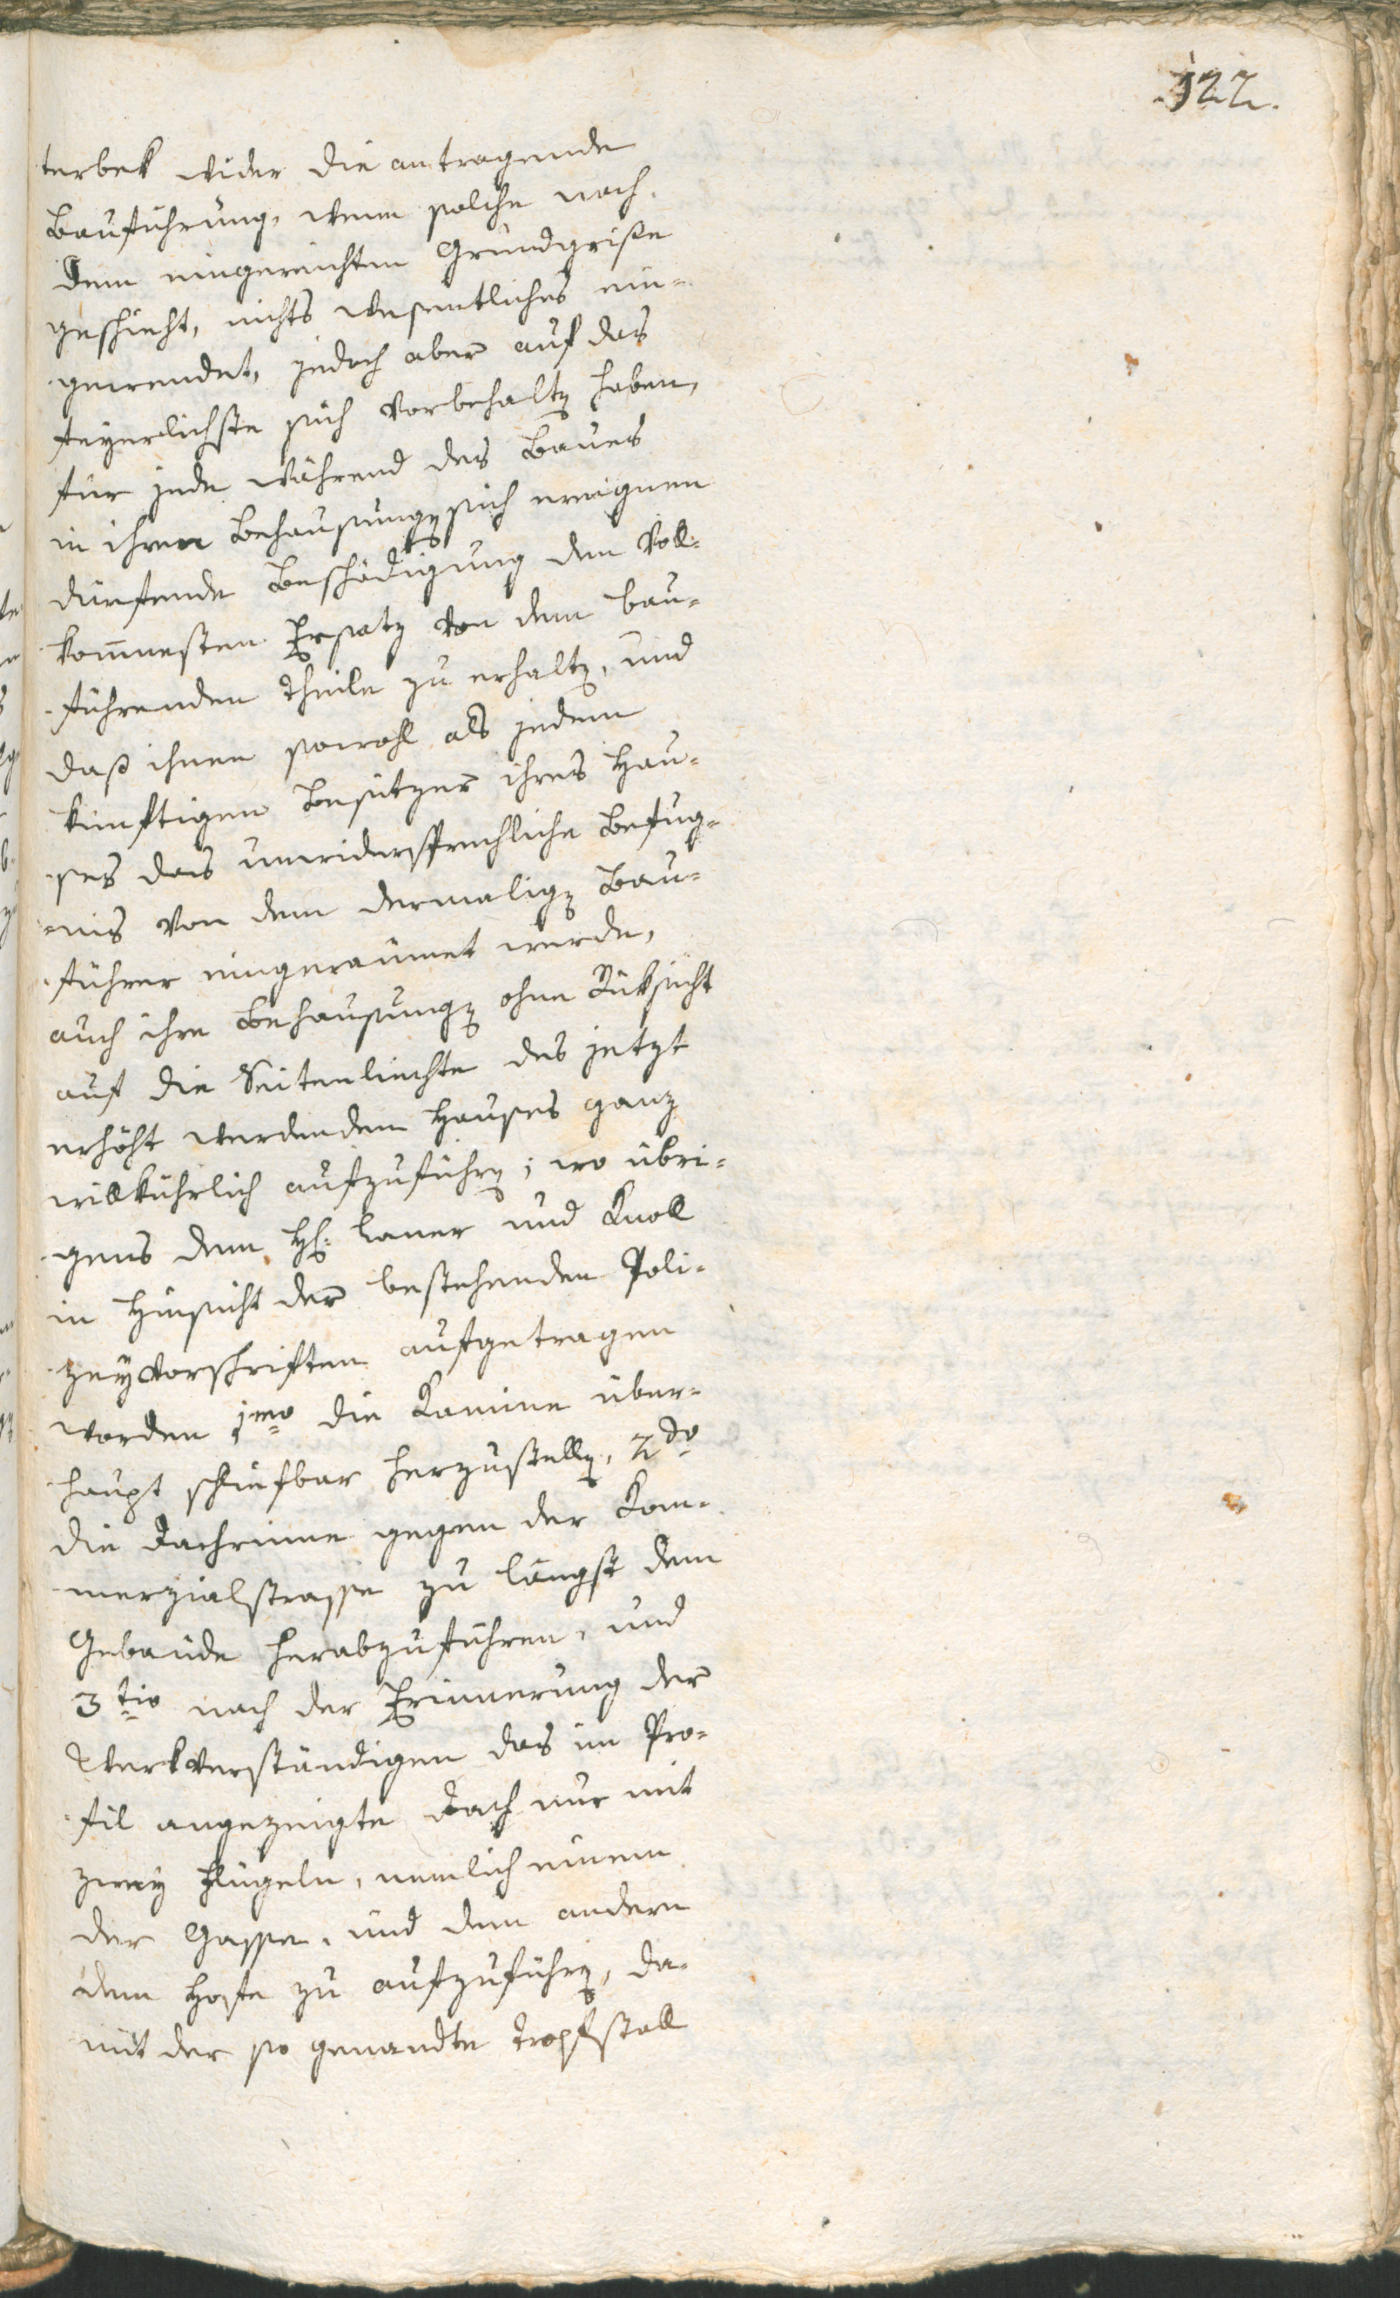 322.
terbek wider die antragende
Bauführung, wenn solche nach
dem eingereichten Grundgriße
geschieht, nichts wesentliches ein-
gewendet, jedoch aber auf das
feyerlichste sich vorbehaltz haben,
für jede während des Baues
in ihren Behausungz sich ereignen
dürfende Beschädigung den Voll-
kom̅nesten Ersatz von dem bau-
führenden Theile zu erhaltz, und
daß ihnen sowohl als jedem
künftigen Besitzer ihres Hau-
ses das unwidersprechliche Befug-
nis von dem dermaligz Bau-
führer eingeraumet werde,
auch ihre Behausungz ohne Rüksicht
auf die Seitenliechte des jetzt
erhöht werdendem Hauses ganz
willkührlich aufzuführz; wo übri-
gens dem H: Laner und Knoll
in Hinsicht der bestehenden Poli-
zeyvorschriften aufgetragen
worden 1mo die Kamine über-
haupt schliefbar herzustellz, 2do
die Dachrinne gegen der Kom-
merzialstrasse zu längst dem
Gebäude herabzuführen, und
3tio nach der Erinnerung der
Werkverständigen das im Pro-
fil angezeigte Dach nur mit
zwey Flügeln, nemlich einem
der Gasse, und dem andern
dem Hofe zu aufzuführz, da-
mit der so genandte Tropfstall